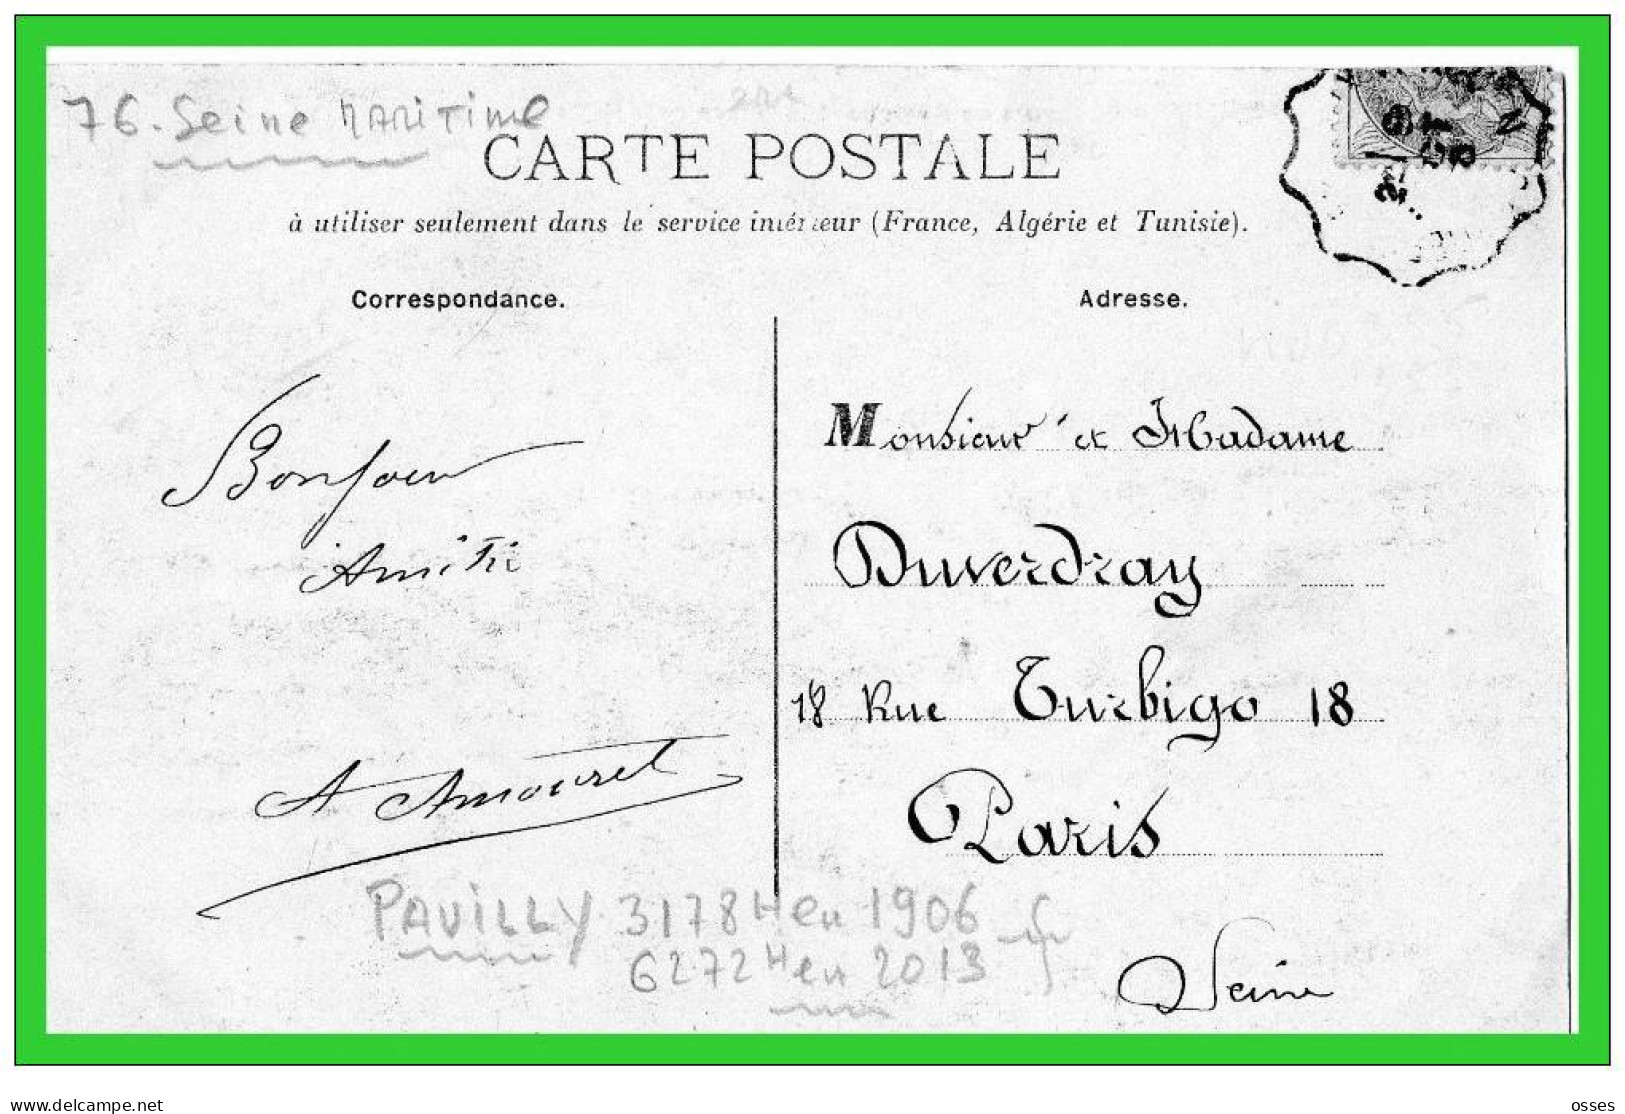 76. Seine MARITIME
CARTE POSTALE
à utiliser seulement dans le service intérieur (France, Algérie et Tunisie).
Correspondance.
Adresse.
Bonjour
Amitié
A Amouret
Monsieur et Madame
Duverdray
18 Rue Turbigo 18
Paris
Seine
PAVILLY 3178 H en 1906
6272 H en 2013
www.delcampe.net
osses